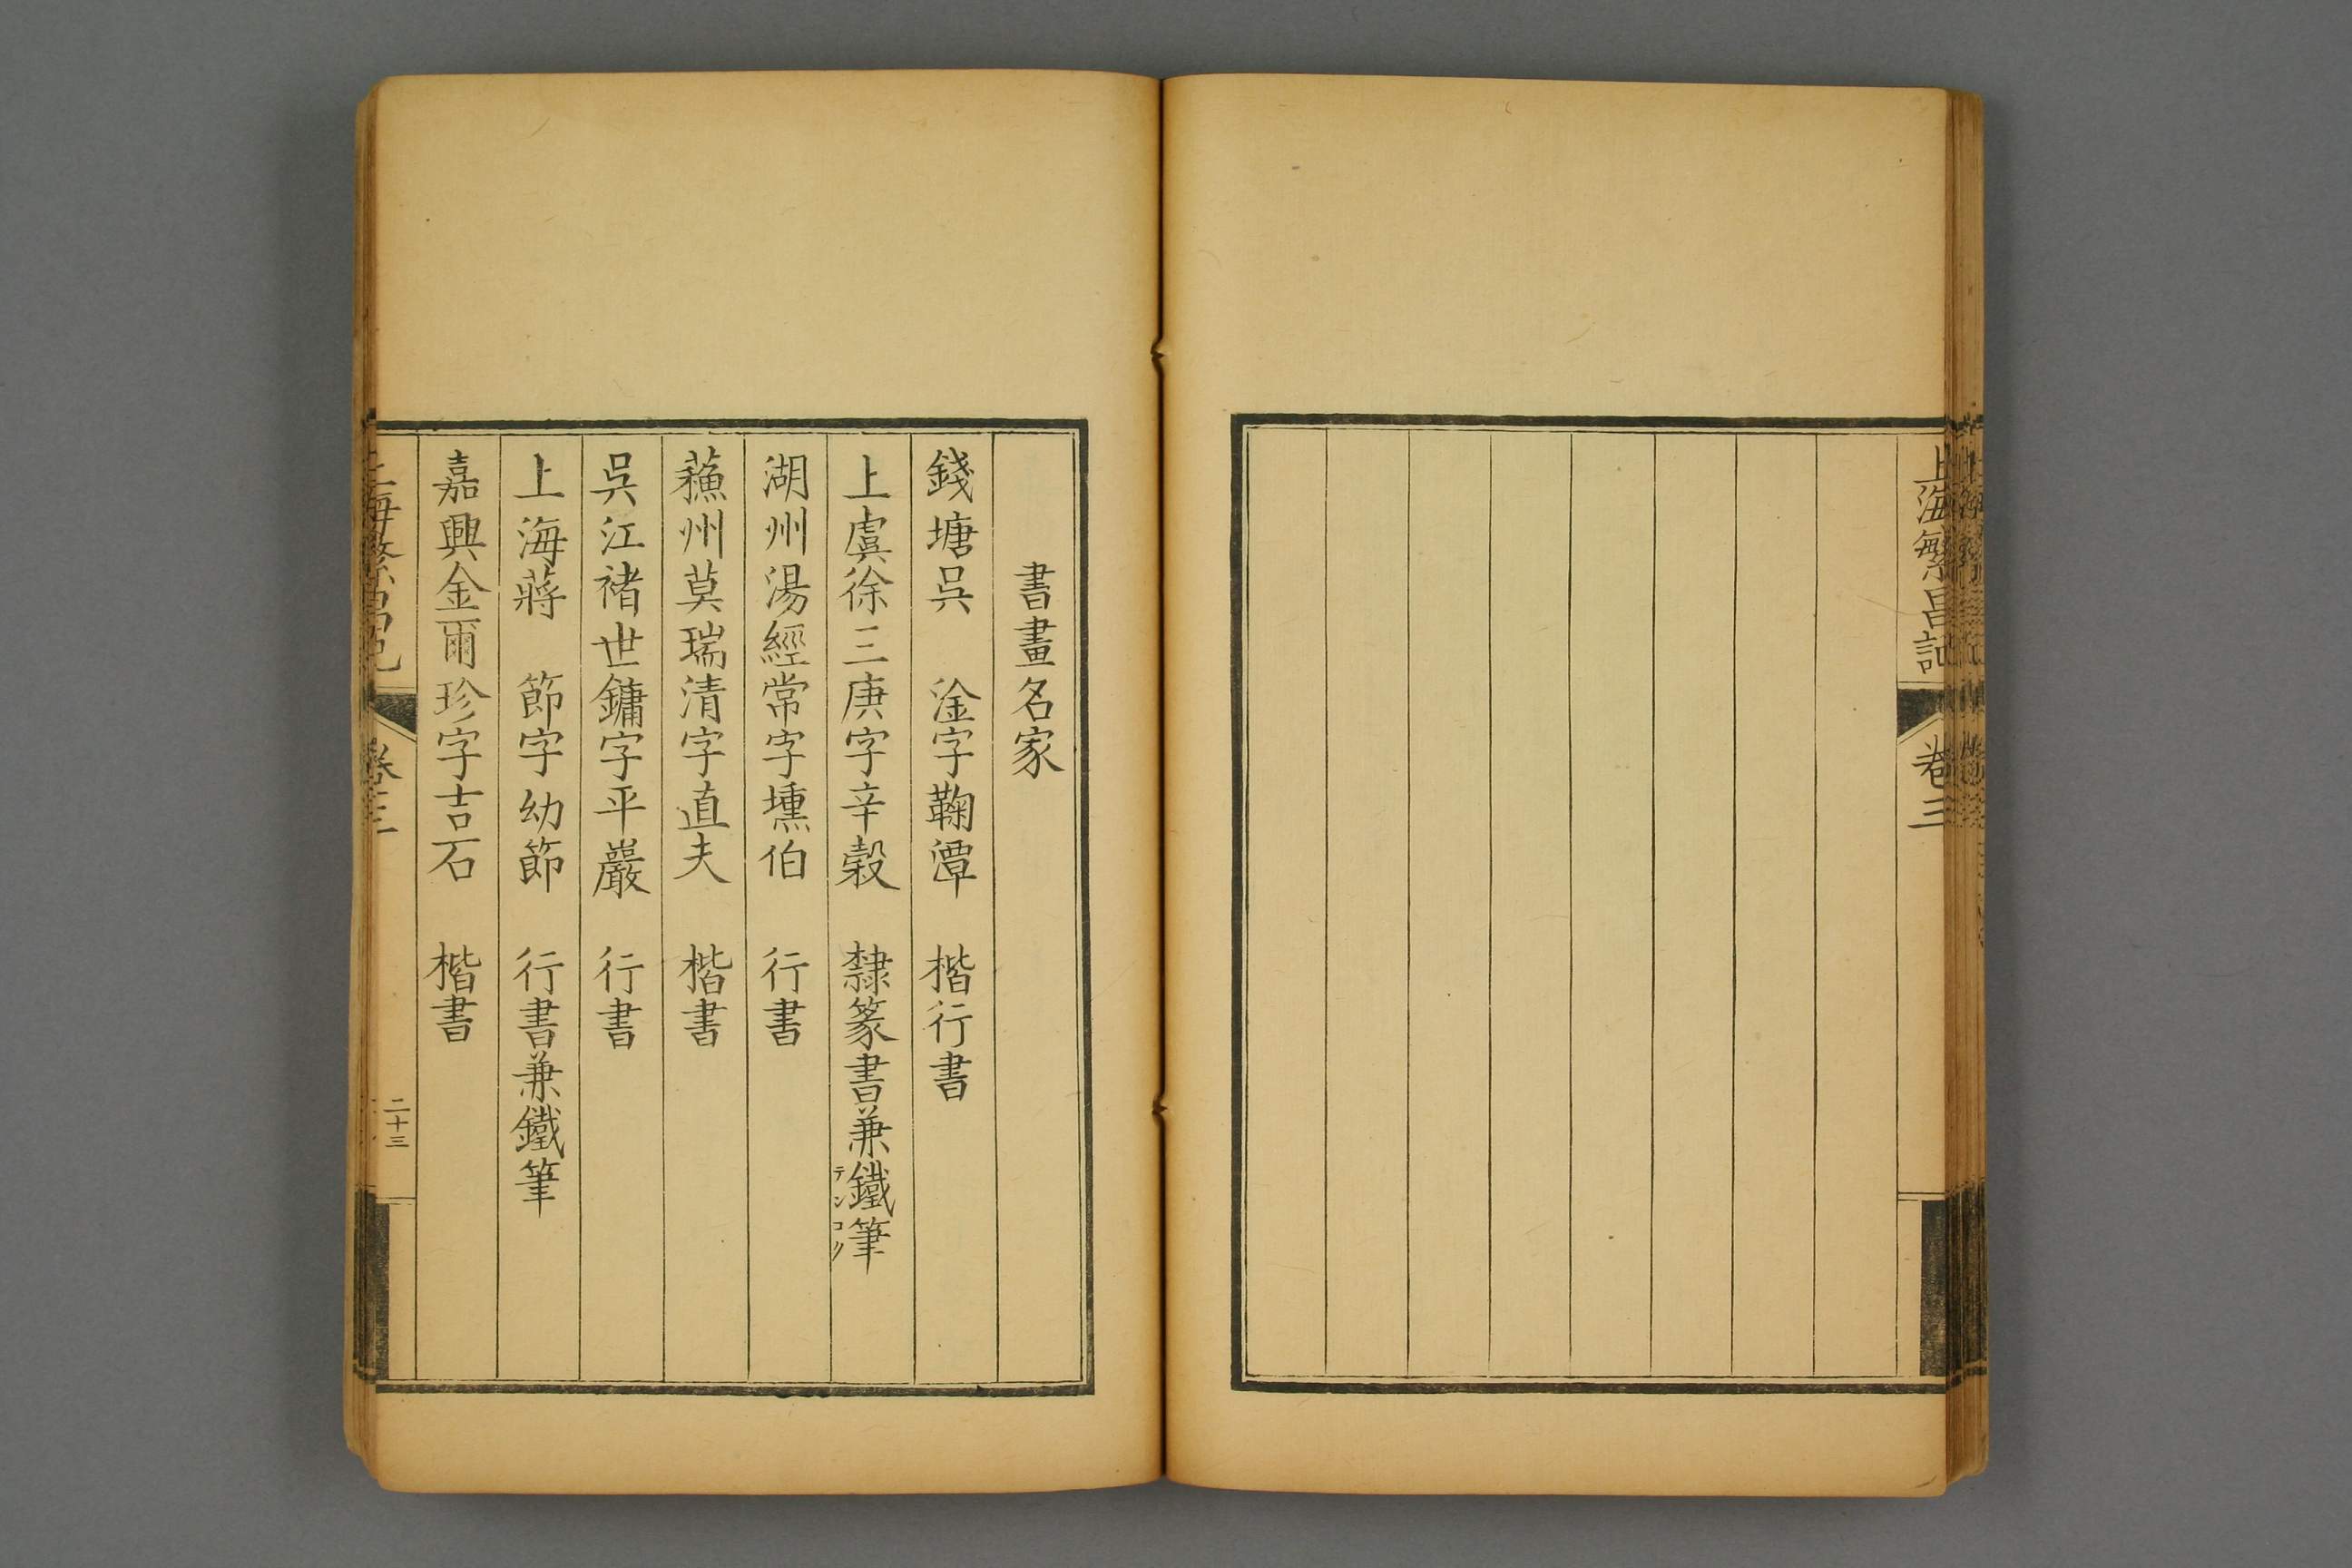 上海繁昌記
卷三
書畫名家
錢塘吳　淦字鞠潭　楷行書
上虞徐三庚字辛穀　隸篆書兼鐵筆
テンコク
湖州湯經常字壎伯　行書
蘓州莫瑞清字直夫　楷書
吳江褚世鏞字平巖　行書
上海蔣　節字幼節　行書兼鐵筆
嘉興金爾珍字吉石　楷書
上海繁昌記
卷三
二十三